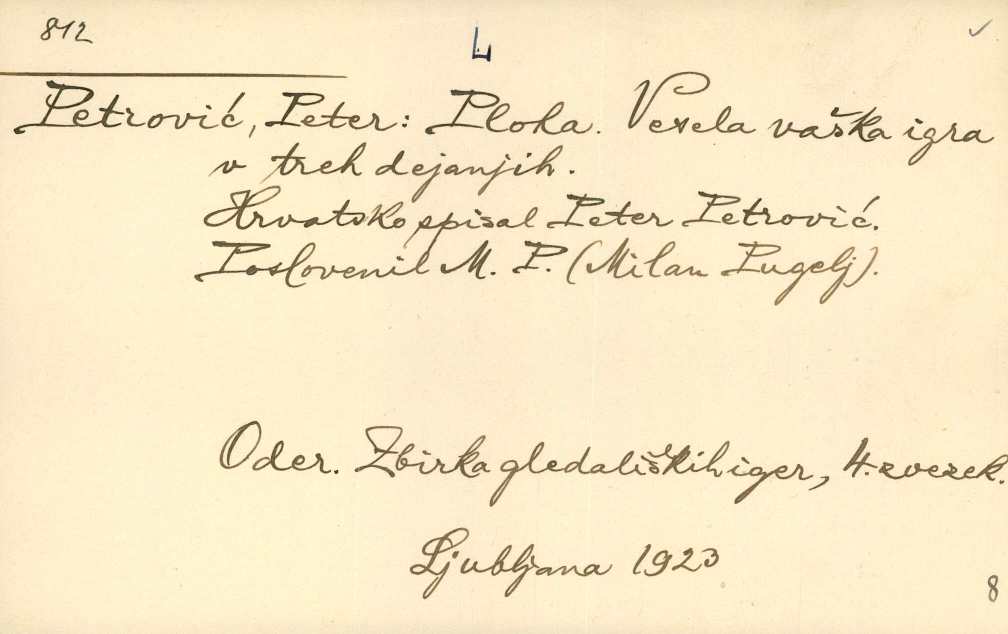 812
L
Petrović, Peter: Ploha. Vesela vaška igra
v treh dejanjih.
Hrvatsko spisal Peter Petrović.
Poslovenil M. P. (Milan Pugelj).
Oder. Zbirka gledaliških iger, 4. zvezek.
Ljubljana 1923
8